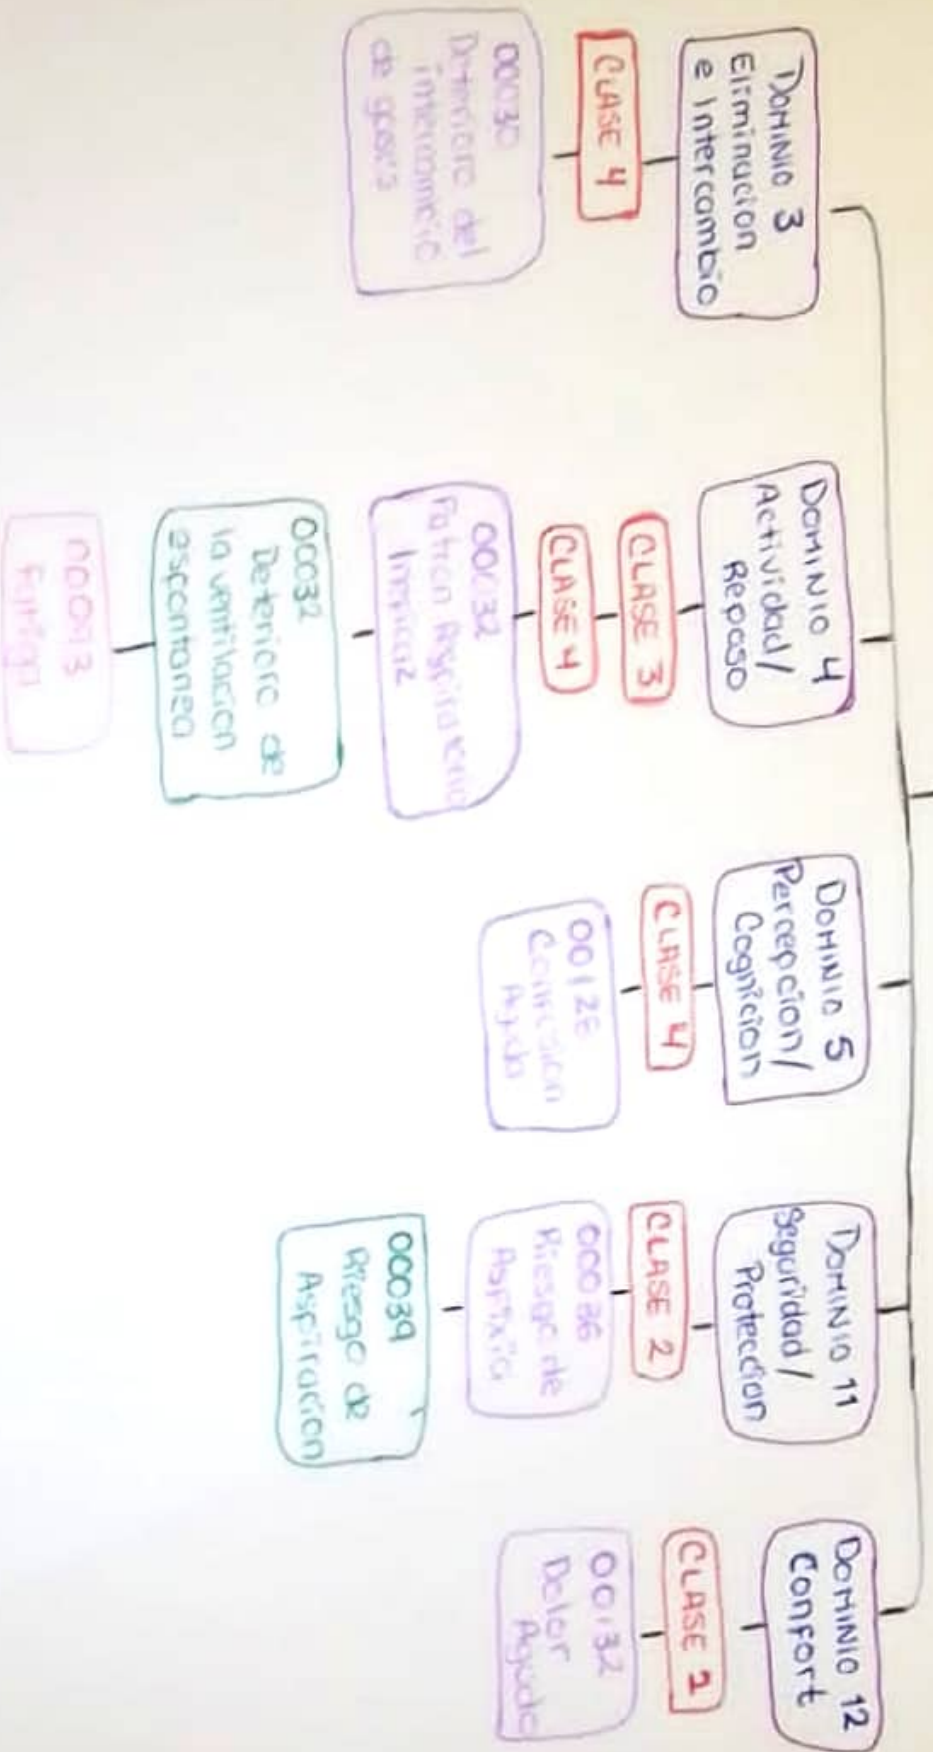 DOMINIO 3
Eliminacion
e Intercambio
CLASE 4
00030
Deterioro del
intercambio
de gases
DOMINIO 4
Actividad/
Reposo
CLASE 3
CLASE 4
00032
Patron Respiratorio
Ineficaz
00032
Deterioro de
la ventilacion
espontanea
00093
Fatiga
DOMINIO 5
Percepcion/
Cognicion
CLASE 4
Confusion
Aguda
DOMINIO 11
Seguridad/
Proteccion
CLASE 2
00036
Riesgo de
Asfixia
00039
Riesgo de
Aspiracion
DOMINIO 12
Confort
CLASE 1
00132
Dolor
Agudo